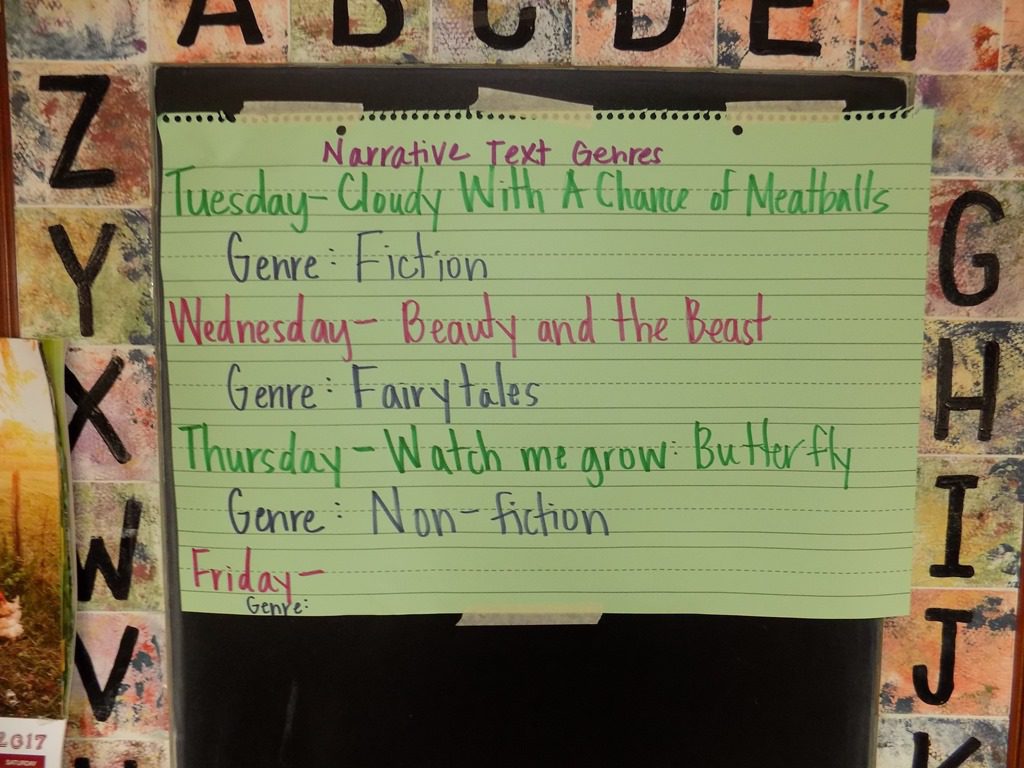 A B C D E F
Z
Y
X
W
V
Narrative Text Genres
Tuesday- Cloudy With A Chance of Meatballs
Genre: Fiction
Wednesday- Beauty and the Beast
Genre: Fairytales
Thursday- Watch me grow: Butterfly
Genre: Non-fiction
Friday-
Genre:
G
H
I
J
K
2017
SATURDAY